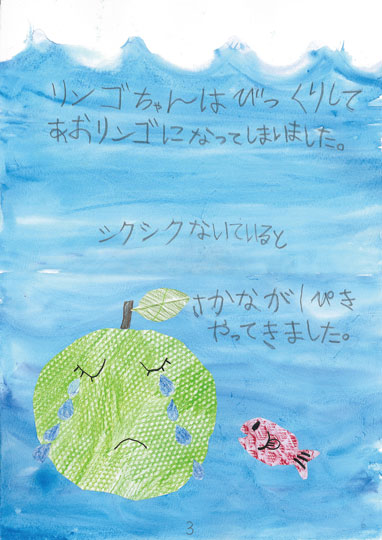 リンゴちゃんはびっくりして
あおリンゴになってしまいました。
シクシクないていると
さかなが1ぴき
やってきました。
3